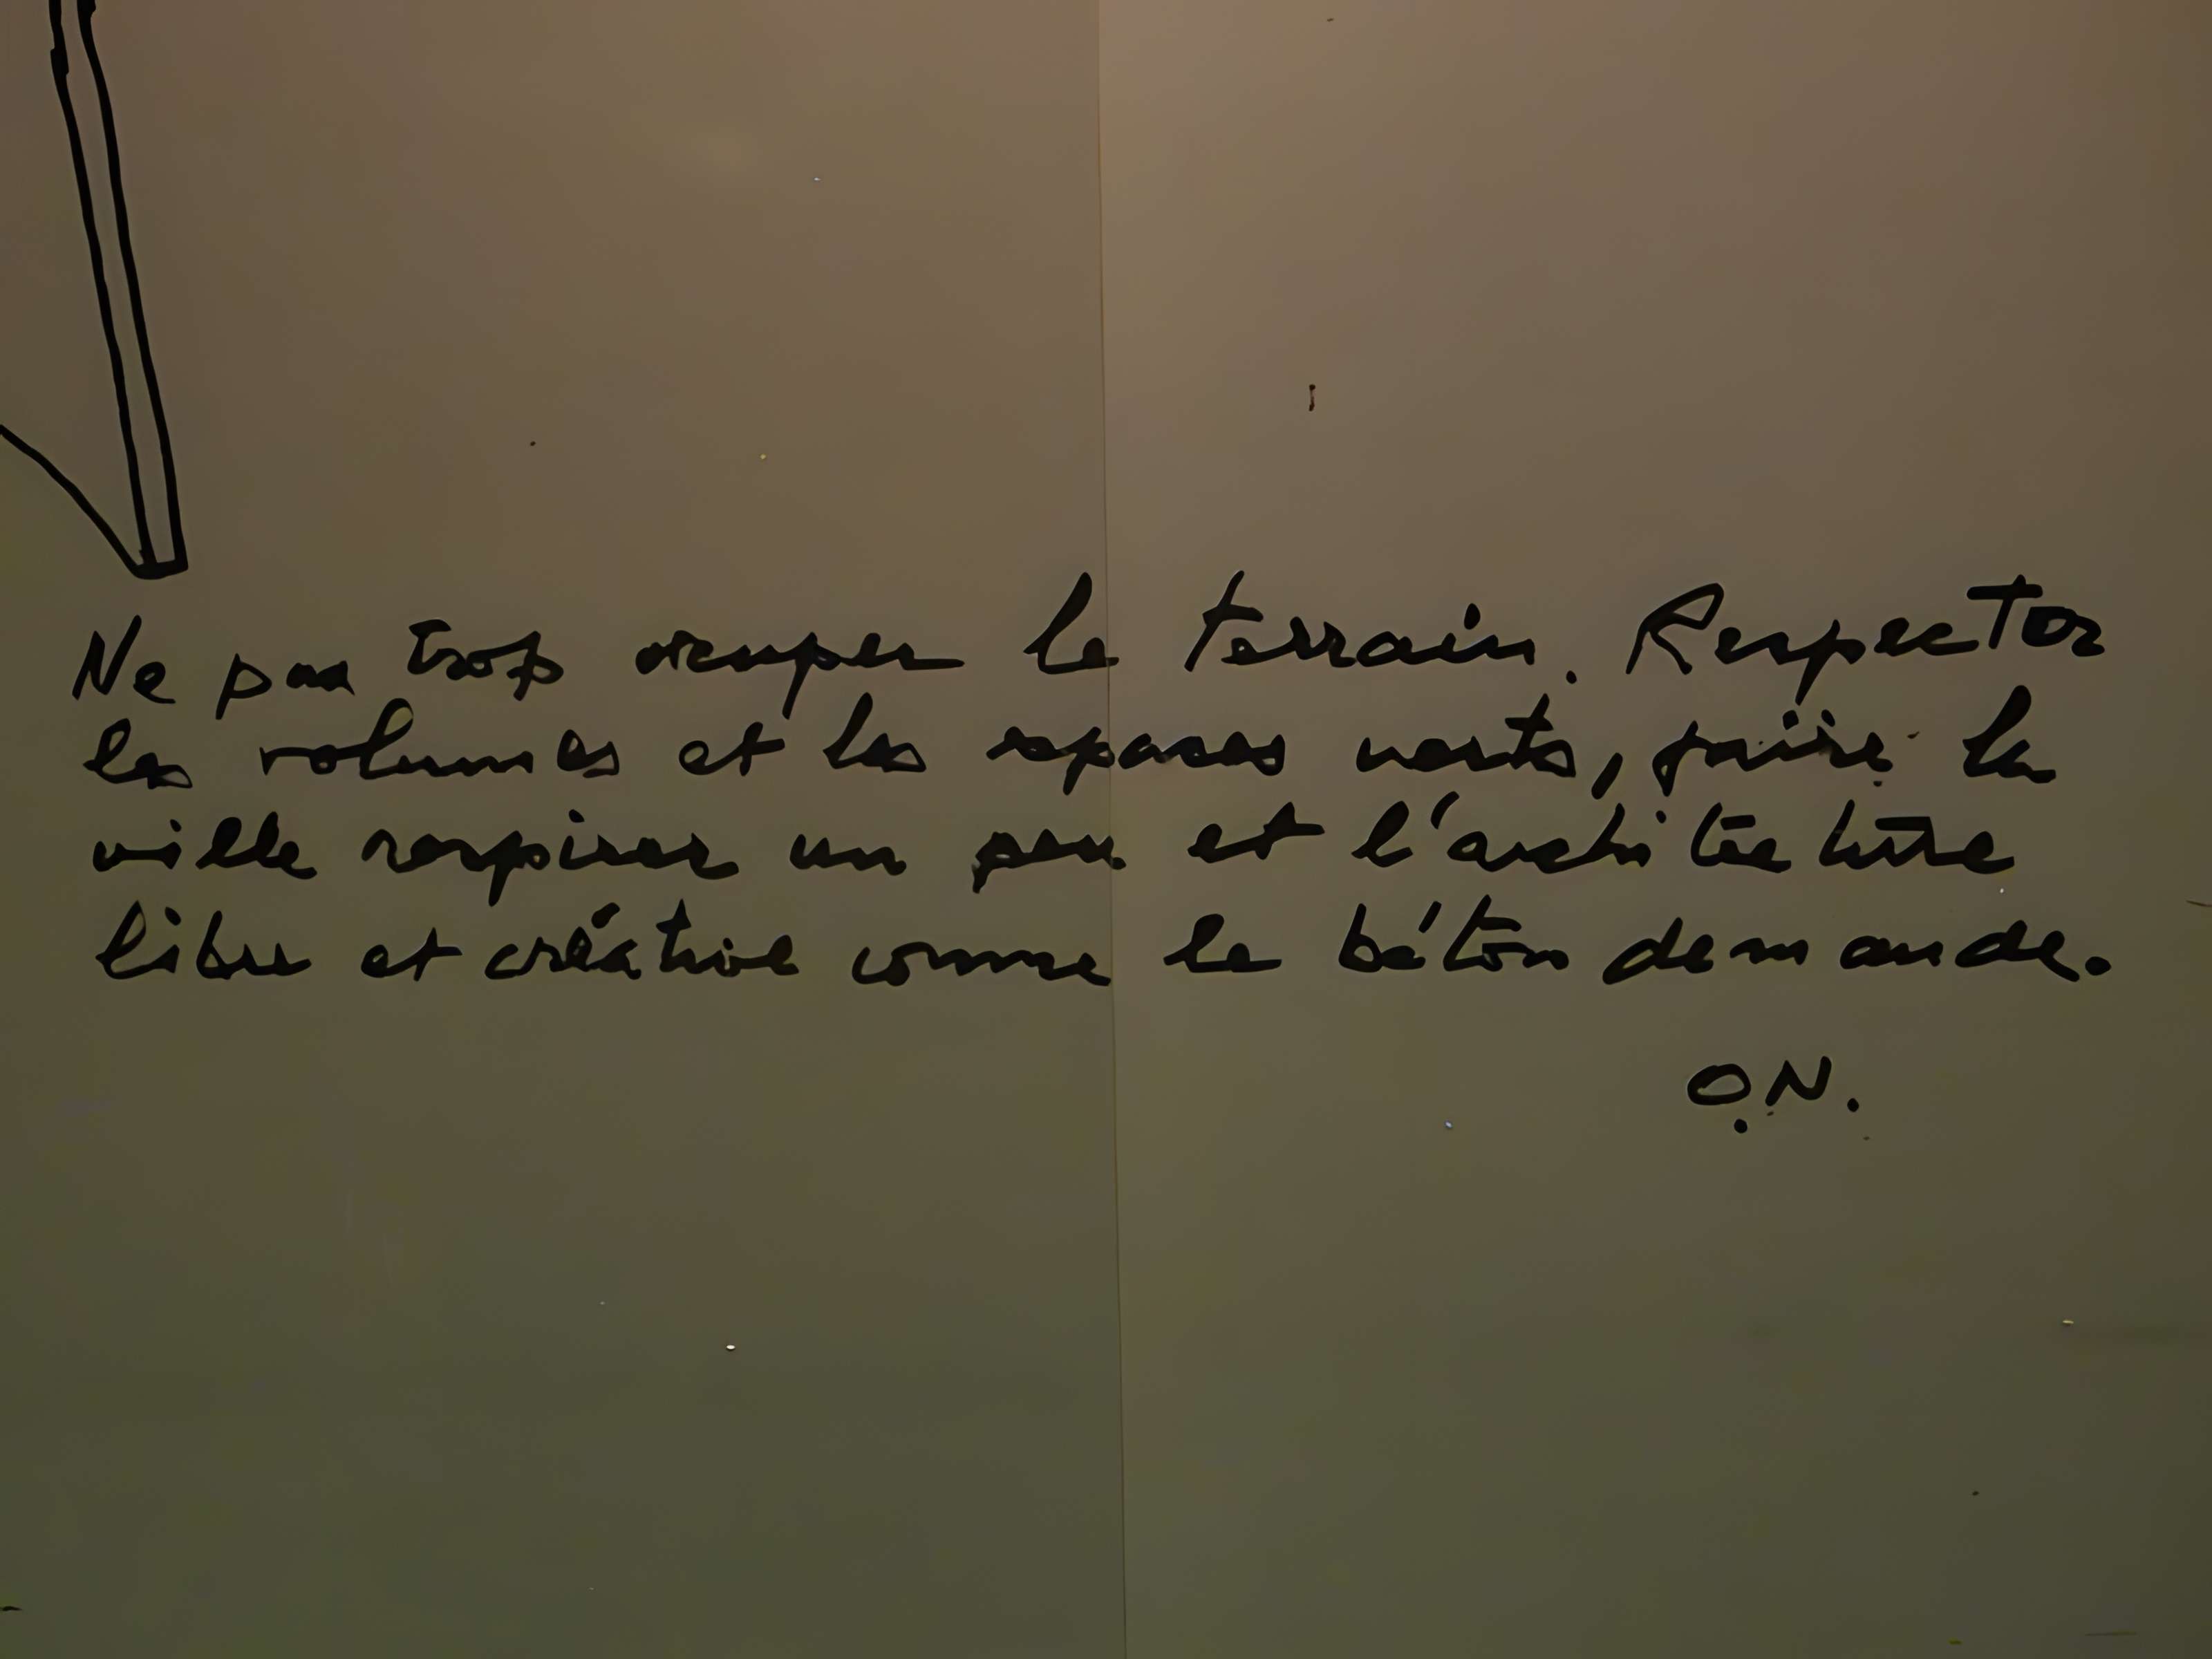 Ne pas trop occuper le terrain. Respecter
les volumes et les espaces verts, la
ville respirer un peu et l'architecture
libre et créative comme le béton demande.
O.N.